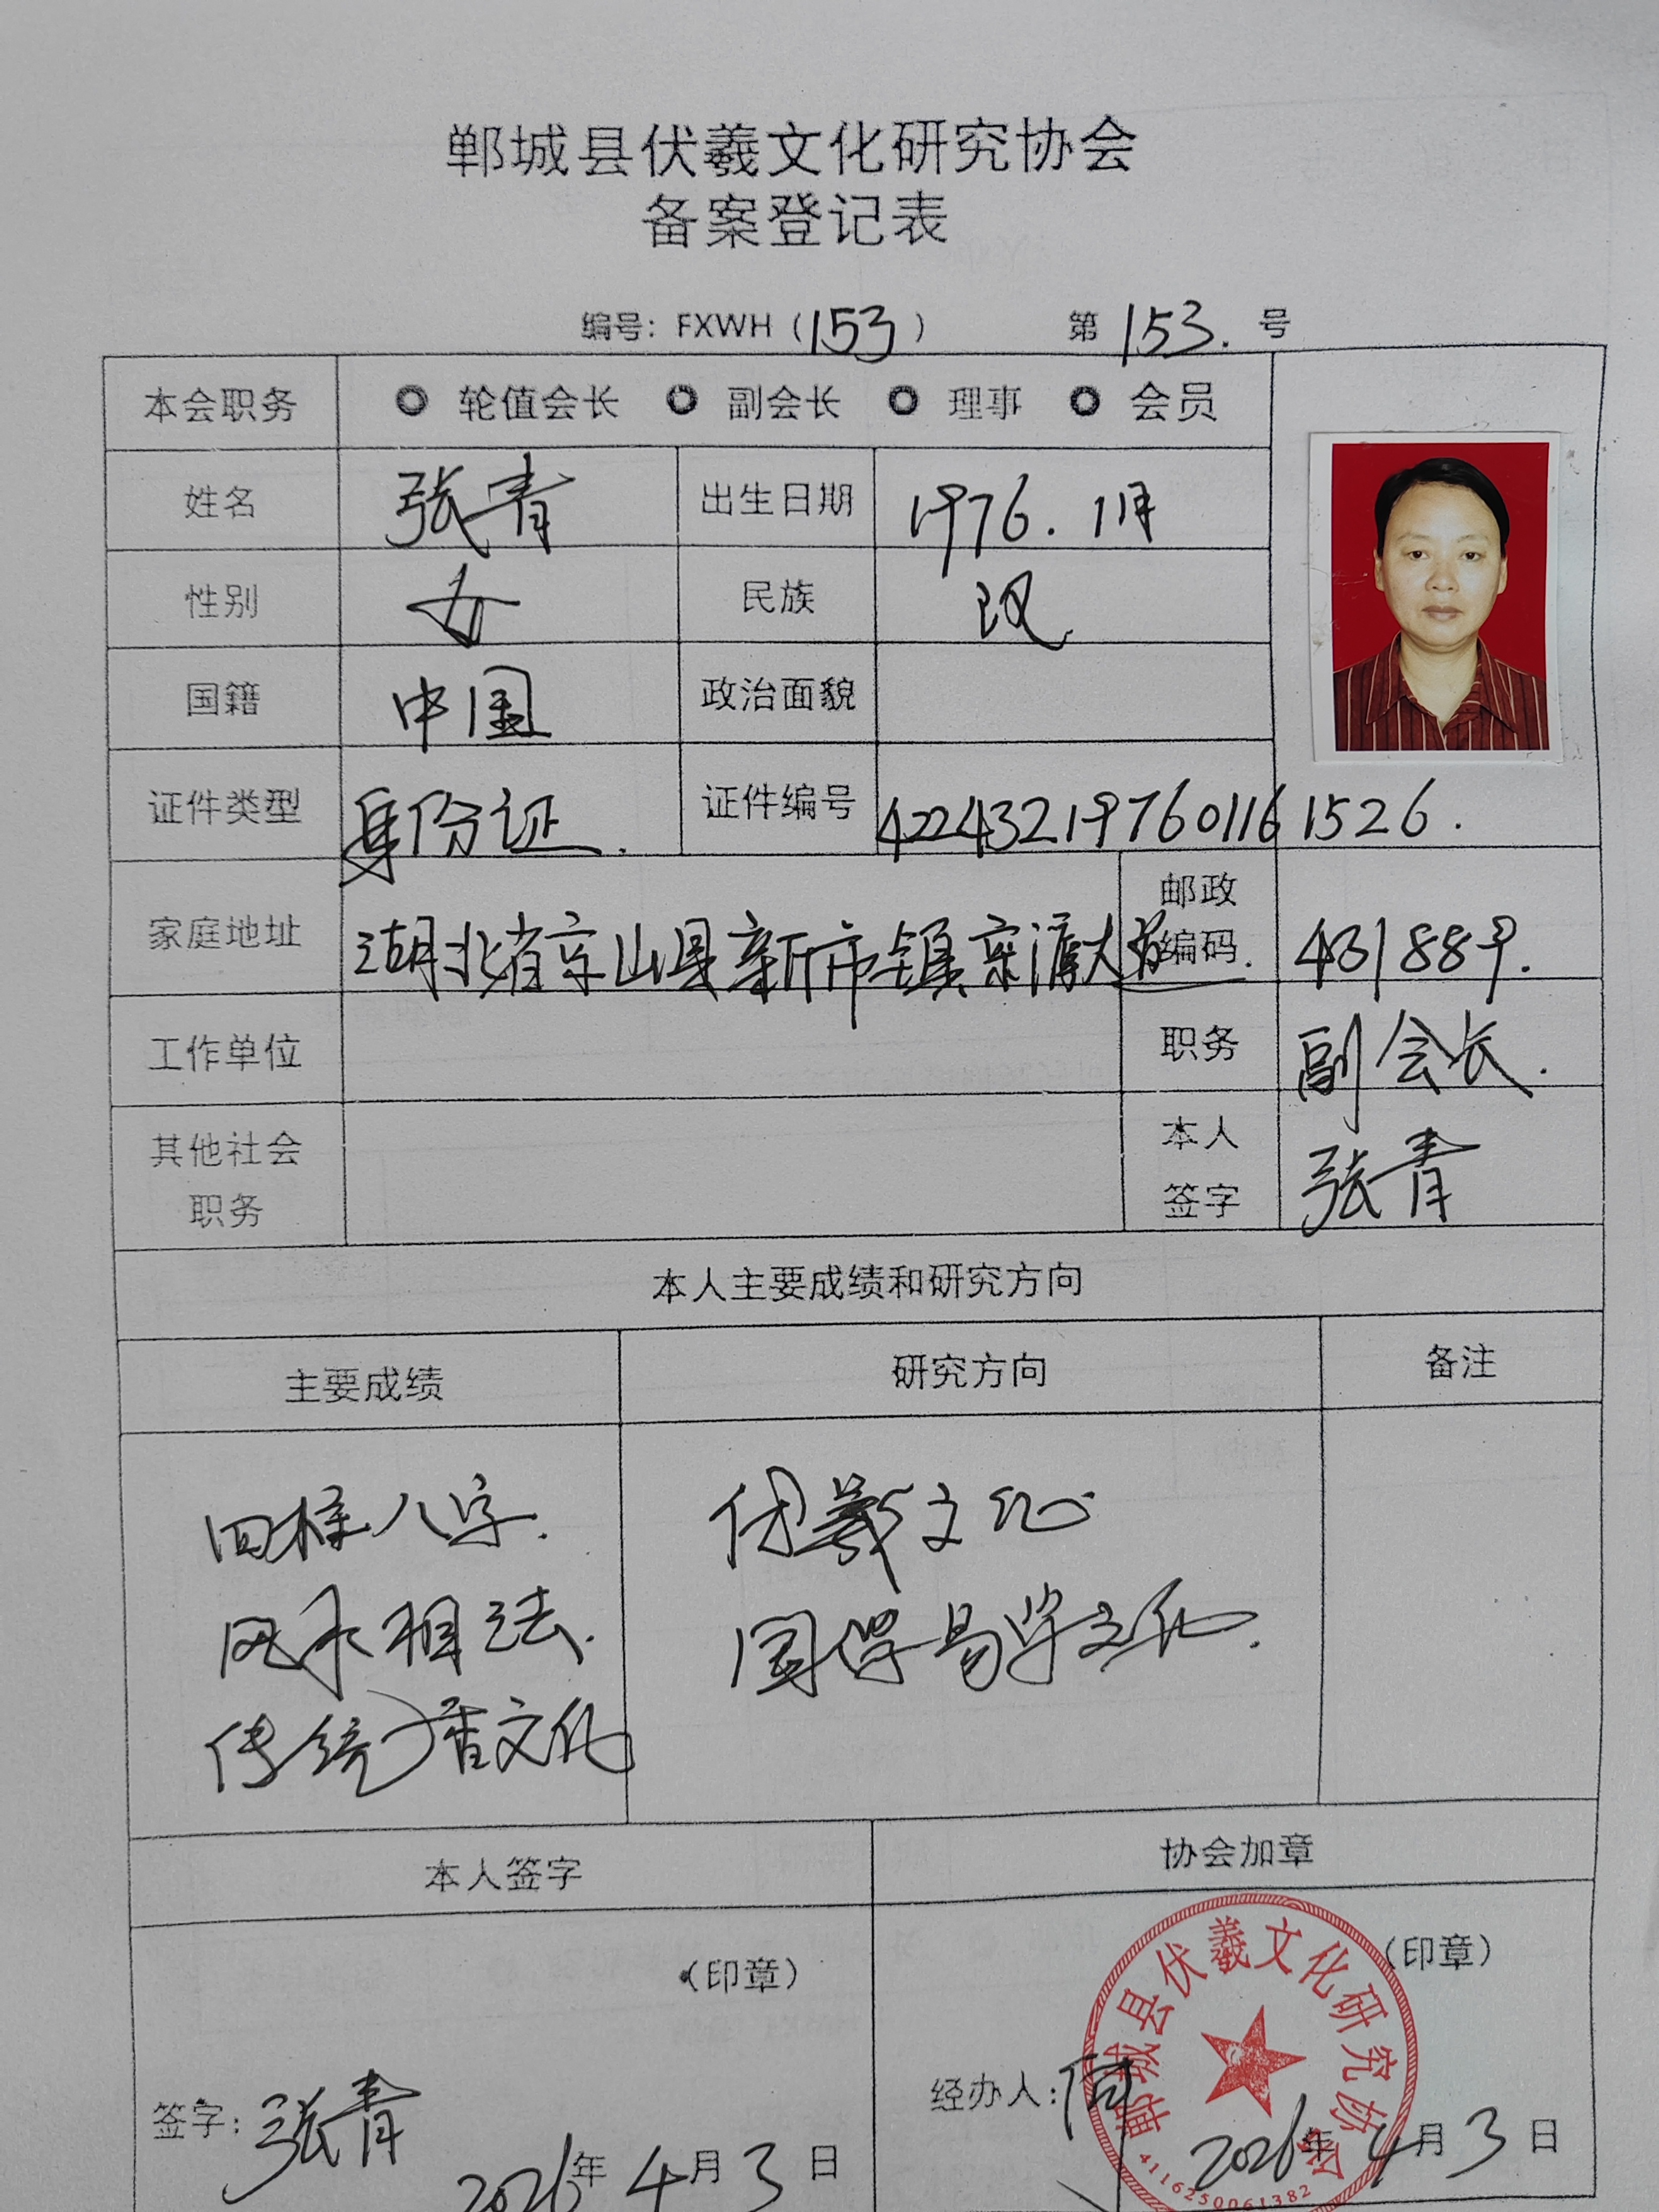 郸城县伏羲文化研究协会
备案登记表
编号：FXWH（153） 第 153. 号
本会职务 轮值会长 副会长 理事 会员
姓名 张青 出生日期 1976.1月
性别 女 民族 汉
国籍 中国 政治面貌
证件类型 身份证. 证件编号 422432197601161526.
家庭地址 湖北省京山县新市镇京 大 邮政编码 431889.
工作单位 职务 副会长.
其他社会职务 本人签字 张青
本人主要成绩和研究方向
主要成绩 研究方向 备注
四柱八字. 伏羲文化
风水相法. 国学易学文化.
传统 文化
本人签字 协会加章
（印章） （印章）
郸城县伏羲文化研究协会
签字：张青 经办人：
2026年4月3日 2026年4月3日
4116250061382